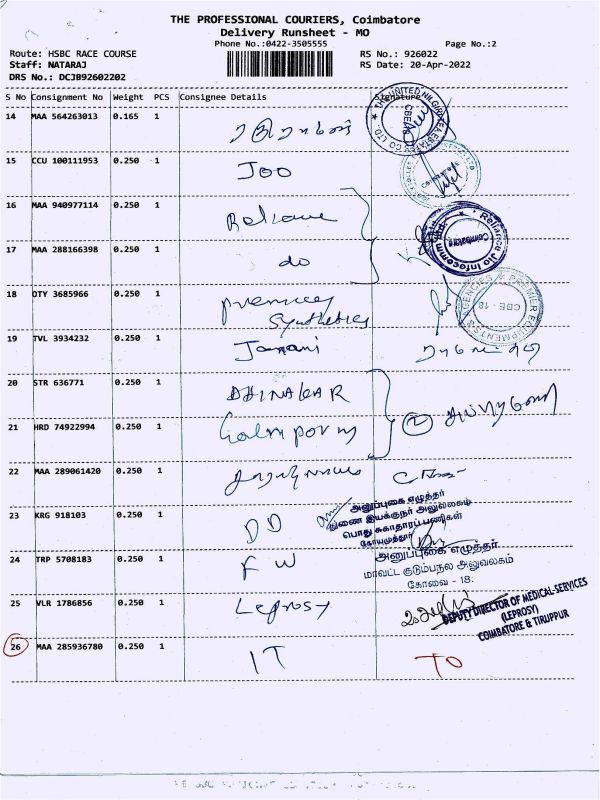 THE PROFESSIONAL COURIERS, Coimbatore
Delivery Runsheet - MO
Phone No.:0422-3505555
Page No.:2
Route: HSBC RACE COURSE
RS No.: 926022
Staff: NATARAJ
RS Date: 20-Apr-2022
DRS No.: DCJB92602202
S No Consignment No Weight PCS Consignee Details Signature
14 MAA 564263013 0.165 1
15 CCU 100111953 0.250 1 JOO
16 MAA 940977114 0.250 1 Reliance
Reliance Jio Infocomm Ltd. Coimbatore
17 MAA 288166398 0.250 1 do
18 OTY 3685966 0.250 1
Synthetics
PREMIER EQUIPMENTS & AGENCIES CBE - 18
19 TVL 3934232 0.250 1 Janani
20 STR 636771 0.250 1 DHINAKAR
21 HRD 74922994 0.250 1 2
22 MAA 289061420 0.250 1
அனுப்புகை எழுத்தர்
துணை இயக்குநர் அலுவலகம்
பொது சுகாதாரப் பணிகள்
கோயமுத்தூர்
23 KRG 918103 0.250 1 DD
அனுப்புகை எழுத்தர்
24 TRP 5708183 0.250 1 FW
மாவட்ட குடும்பநல அலுவலகம்
கோவை - 18.
25 VLR 1786856 0.250 1 Leprosy
DEPUTY DIRECTOR OF MEDICAL SERVICES
(LEPROSY)
COIMBATORE & TIRUPPUR
26 MAA 285936780 0.250 1 IT TO